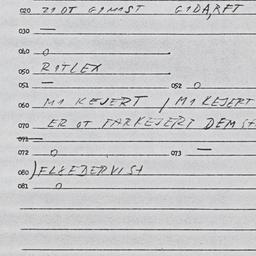 020 ZIOT GIMIST GIDARFT
030 —
040 0
050 RITLEX
051 — 052 0
060 MI KEJERT / MI KEJERT
070 ER OT FARKEJERT DEM
071
072 0 073 —
080
081 0